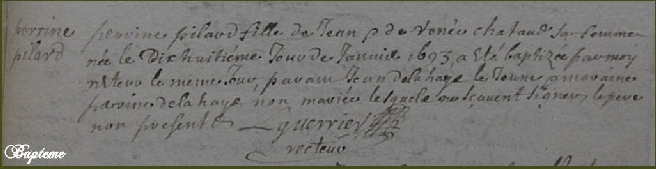 perrine
pilard
perrine pilard fille de Jean & de Renée chataud sa femme
née le Dixhuitiéme Jour de Janvier 1693 a eté baptizée par moy
recteur le meme Jour, parain Jean delahaye le Jeune & maraine
perrine delahaye non mariée lesquels ne sçavent signer le pere
non present guerrier
recteur
Bapteme